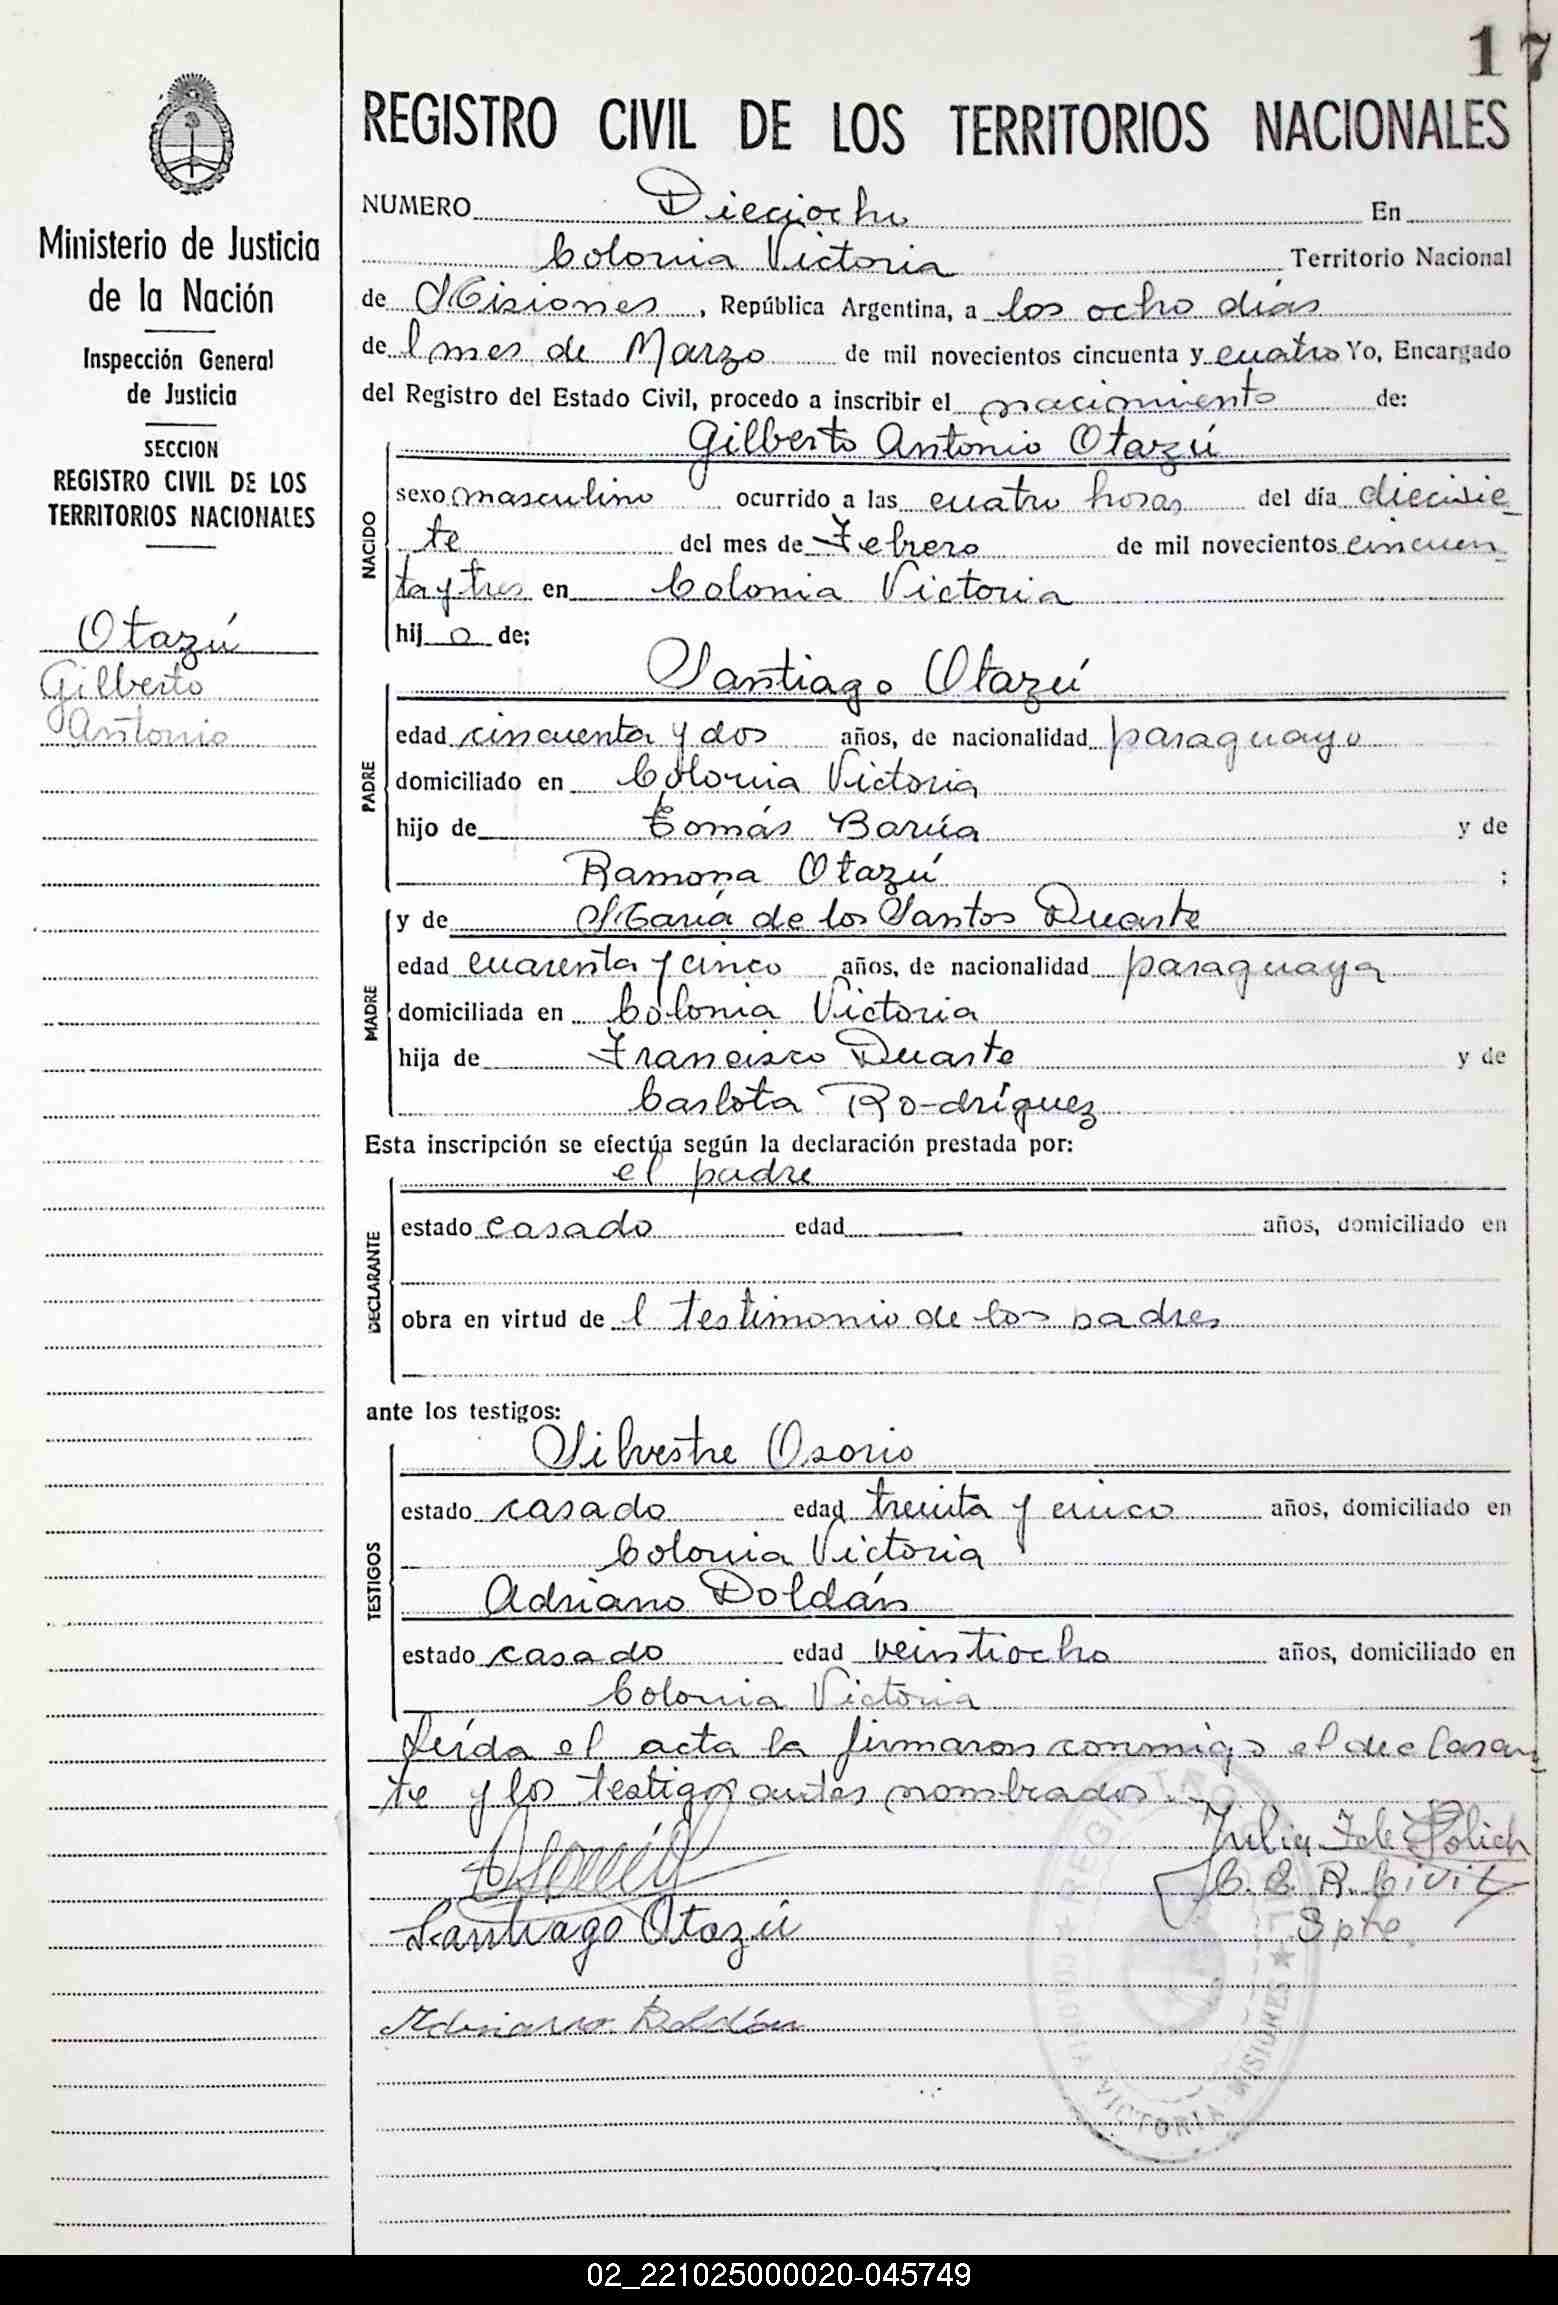 17
REGISTRO CIVIL DE LOS TERRITORIOS NACIONALES
Ministerio de Justicia
de la Nación
Inspección General
de Justicia
SECCION
REGISTRO CIVIL DE LOS
TERRITORIOS NACIONALES
Otazú
Gilberto
Antonio
NUMERO Dieciocho En
Colonia Victoria Territorio Nacional
de Misiones, República Argentina, a los ocho días
de l mes de Marzo de mil novecientos cincuenta y cuatro Yo, Encargado
del Registro del Estado Civil, procedo a inscribir el nacimiento de:
Gilberto Antonio Otazú
NACIDO
sexo masculino ocurrido a las cuatro horas del día diecisie-
te del mes de Febrero de mil novecientos cincuen-
ta y tres en Colonia Victoria
hij o de:
Santiago Otazú
PADRE
edad cincuenta y dos años, de nacionalidad paraguayo
domiciliado en Colonia Victoria
hijo de Tomás Barúa y de
Ramona Otazú ;
y de María de los Santos Duarte
MADRE
edad cuarenta y cinco años, de nacionalidad paraguaya
domiciliada en Colonia Victoria
hija de Francisco Duarte y de
Carlota Ro-dríguez
Esta inscripción se efectúa según la declaración prestada por:
el padre
DECLARANTE
estado casado edad — años, domiciliado en
obra en virtud de l testimonio de los padres
ante los testigos:
Silvestre Osorio
TESTIGOS
estado casado edad treinta y cinco años, domiciliado en
Colonia Victoria
Adriano Doldán
estado casado edad veintiocho años, domiciliado en
Colonia Victoria
Leída el acta la firmaron conmigo el declaran-
te y los testigos antes nombrados.
Julia F. de Polich
E. R. Civil
Spte.
Santiago Otazú
Adriano Doldán
REGISTRO CIVIL
COLONIA VICTORIA - MISIONES
02_221025000020-045749